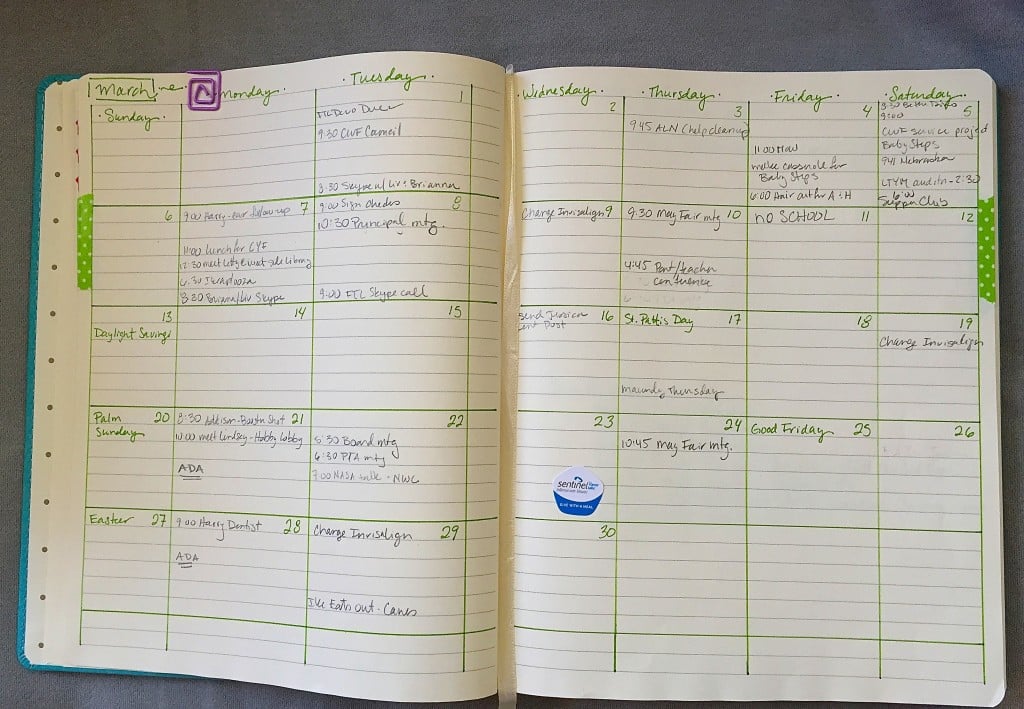 March
Sunday
Monday
Tuesday
Wednesday
Thursday
Friday
Saturday
1
9:30 CWF Council
3:30 Skype w/ Liv + Brianna
2
3
9:45 ALN (help cleanup)
4
11:00
make casserole for
Baby Steps
6:00 Hair
5
9:00
CWF service project
Baby Steps
Nebraska
LTYM auditn - 2:30
6:00
Supper Club
6
7
9:00 Harry - ear follow up
11:00 Lunch for CYF
12:30 meet
6:30
8:30 Briana/Liv Skype
8
9:00 Sign checks
10:30 Principal mtg.
9:00 FTL Skype call
Change Invisalign 9
9:30 May Fair mtg. 10
4:45 Part/teacher
conference
no SCHOOL 11
12
13
Daylight Savings
14
15
send
16
St. Patti's Day 17
Maundy Thursday
18
19
Change Invisalign
Palm 20
Sunday
8:30 Addison - Booster Shot 21
10:00 meet Lindsey - Hobby Lobby
ADA
22
5:30 Board mtg
6:30 PTA mtg
7:00 NASA talk - NWC
23
sentinel
GIVE WITH A MEAL
24
10:45 May Fair mtg.
Good Friday 25
26
Easter 27
9:00 Harry Dentist 28
ADA
Change Invisalign 29
Eats out - Canes
30